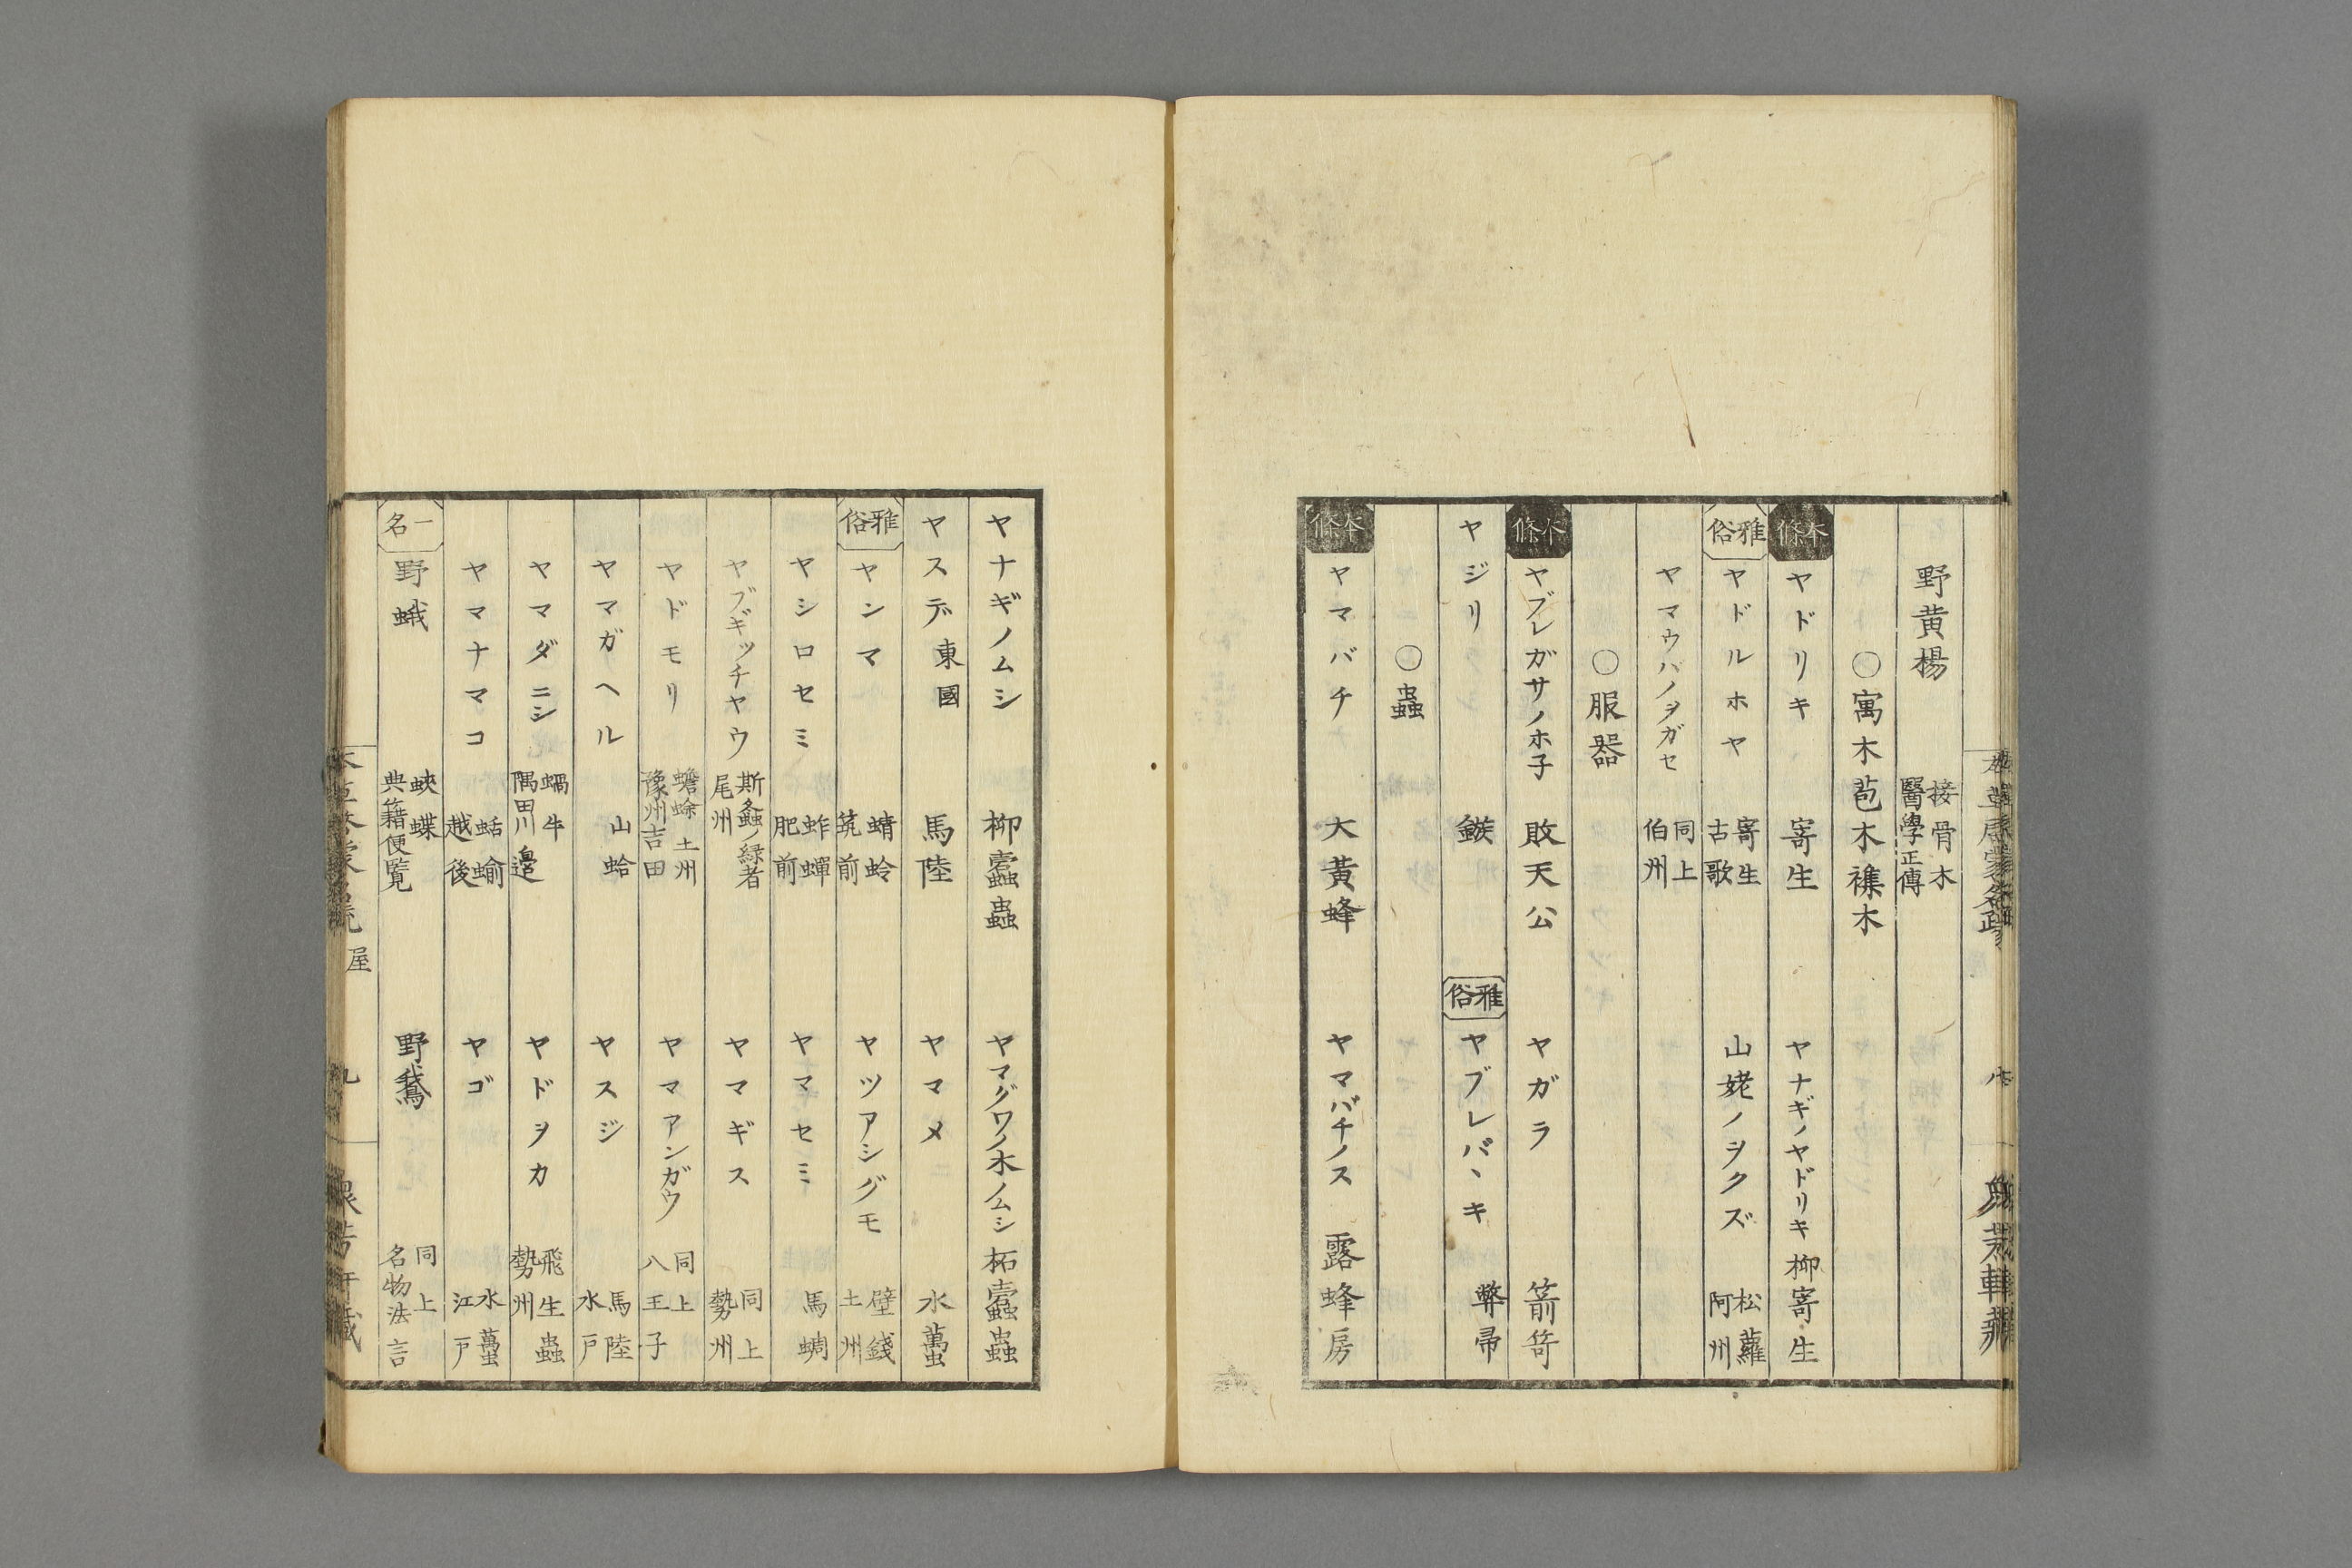 野黄楊 接骨木 醫學正傳
〇寓木 苞木 襍木
本條 ヤドリキ 寄生 ヤナギノヤドリキ 柳寄生
雅俗 ヤドルホヤ 寄生 古歌 山姥ノヲクズ 松蘿 阿州
ヤマウバノヲガセ 同上 伯州
〇服器
本條 ヤブレガサノホ子 敗天公 ヤガラ 箭笴
ヤジリ 鏃 雅俗 ヤブレバヽキ 弊帚
〇蟲
本條 ヤマバチ 大黄蜂 ヤマバチノス 露蜂房
ヤナギノムシ 柳蠹蟲 ヤマグワノ木ノムシ 柘蠹蟲
ヤスデ 東國 馬陸 ヤマメ 水蠆
雅俗 ヤンマ 蜻蛉 筑前 ヤツアシグモ 壁錢 土州
ヤシロセミ 蚱蟬 肥前 ヤマセミ 馬蜩
ヤブギッチヤウ 斯螽ノ緑者 尾州 ヤマギス 同上 勢州
ヤドモリ 蟾蜍 土州 豫州吉田 ヤマアンガウ 同上 八王子
ヤマガヘル 山蛤 ヤスジ 馬陸 水戸
ヤマダニシ 蝸牛 隅田川邉 ヤドヲカ 飛生蟲 勢州
ヤマナマコ 蛞蝓 越後 ヤゴ 水蠆 江戸
一名 野蛾 蛺蝶 典籍便覧 野鵞 同上 名物法言
屋
九